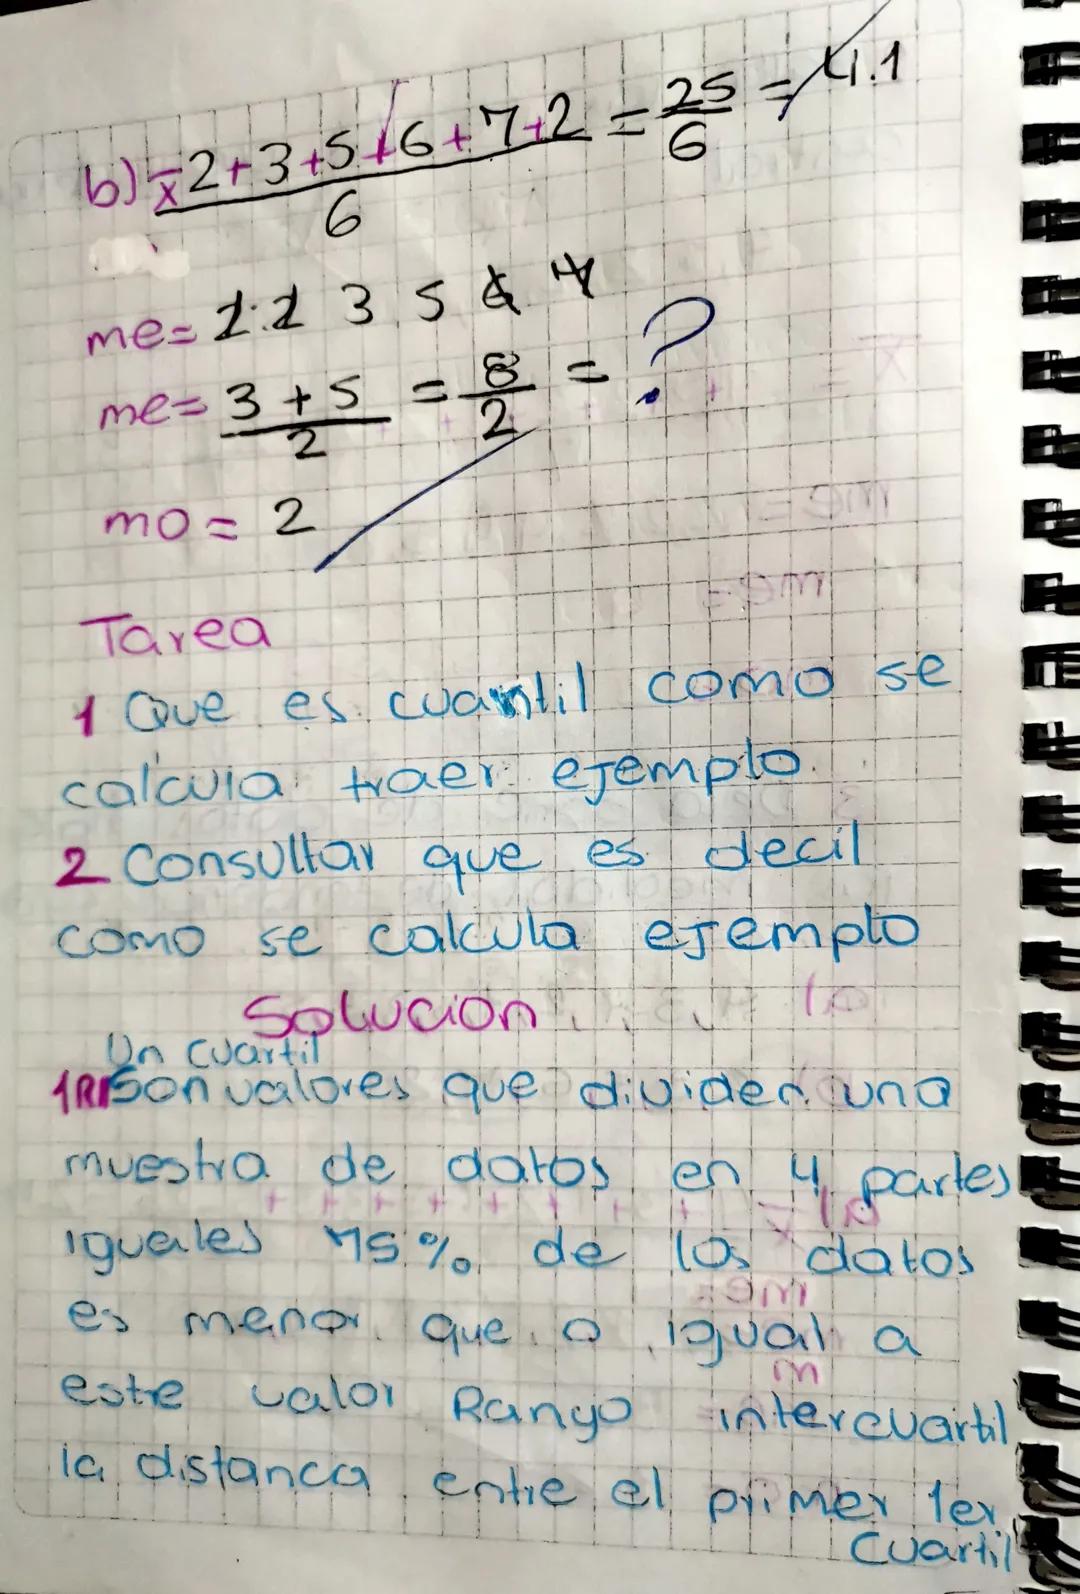 b) x̄ 2+3+5+6+7+2 = 25 = 4.1
6 6
me= 2 2 3 5 6 7
me= 3 + 5 = 8 = ?
2 2
mo = 2
Tarea
1 Que es cuantil como se
calcula traer ejemplo
2 Consultar que es decil
como se calcula ejemplo
Solucion
Un cuartil
1R/ Son valores que dividen una
muestra de datos en 4 partes
iguales 75% de los datos
es menor que o igual a
este valor Rango intercuartil
la distanca entre el primer 1er
cuartil